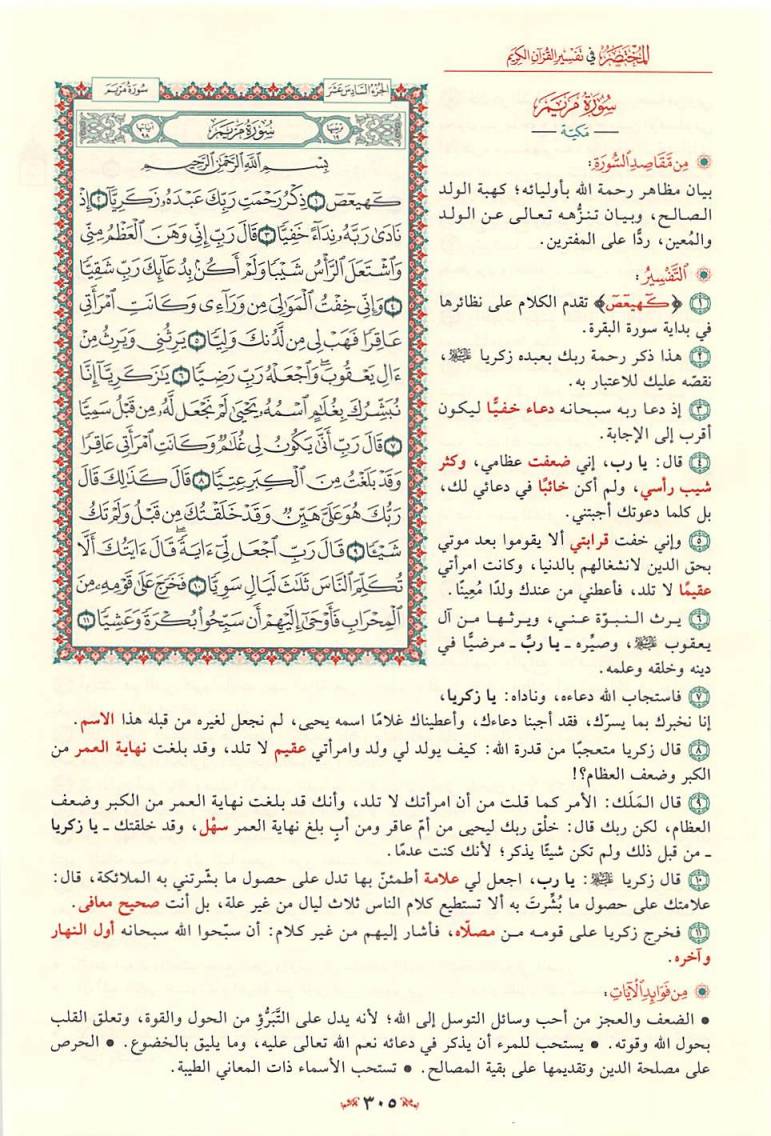 المختصر في تفسير القرآن الكريم
سورة مريم
الجزء السادس عشر
سُورَةُ مَرْيَمَ
مكية
ترتيبها ١٩
سُورَةُ مَرْيَمَ
آياتها ٩٨
بِسْمِ ٱللَّهِ ٱلرَّحْمَٰنِ ٱلرَّحِيمِ
كٓهيعٓصٓ ١ ذِكْرُ رَحْمَتِ رَبِّكَ عَبْدَهُۥ زَكَرِيَّآ ٢ إِذْ
نَادَىٰ رَبَّهُۥ نِدَآءً خَفِيًّا ٣ قَالَ رَبِّ إِنِّي وَهَنَ ٱلْعَظْمُ مِنِّي
وَٱشْتَعَلَ ٱلرَّأْسُ شَيْبًا وَلَمْ أَكُنۢ بِدُعَآئِكَ رَبِّ شَقِيًّا
٤ وَإِنِّي خِفْتُ ٱلْمَوَٰلِيَ مِن وَرَآءِي وَكَانَتِ ٱمْرَأَتِي
عَاقِرًا فَهَبْ لِي مِن لَّدُنكَ وَلِيًّا ٥ يَرِثُنِي وَيَرِثُ مِنْ
ءَالِ يَعْقُوبَۖ وَٱجْعَلْهُ رَبِّ رَضِيًّا ٦ يَٰزَكَرِيَّآ إِنَّا
نُبَشِّرُكَ بِغُلَٰمٍ ٱسْمُهُۥ يَحْيَىٰ لَمْ نَجْعَل لَّهُۥ مِن قَبْلُ سَمِيًّا
٧ قَالَ رَبِّ أَنَّىٰ يَكُونُ لِي غُلَٰمٌ وَكَانَتِ ٱمْرَأَتِي عَاقِرًا
وَقَدْ بَلَغْتُ مِنَ ٱلْكِبَرِ عِتِيًّا ٨ قَالَ كَذَٰلِكَ قَالَ
رَبُّكَ هُوَ عَلَيَّ هَيِّنٌ وَقَدْ خَلَقْتُكَ مِن قَبْلُ وَلَمْ تَكُ
شَيْـًٔا ٩ قَالَ رَبِّ ٱجْعَل لِّيٓ ءَايَةًۖ قَالَ ءَايَتُكَ أَلَّا
تُكَلِّمَ ٱلنَّاسَ ثَلَٰثَ لَيَالٍ سَوِيًّا ١٠ فَخَرَجَ عَلَىٰ قَوْمِهِۦ مِنَ
ٱلْمِحْرَابِ فَأَوْحَىٰٓ إِلَيْهِمْ أَن سَبِّحُوا۟ بُكْرَةً وَعَشِيًّا ١١
من مقاصد السورة:
بيان مظاهر رحمة الله بأوليائه؛ كهبة الولد
الصالح، وبيان تنزهه تعالى عن الولد
والمُعين، ردًّا على المفترين.
التفسير:
١ ﴿كٓهيعٓصٓ﴾ تقدم الكلام على نظائرها
في بداية سورة البقرة.
٢ هذا ذكر رحمة ربك بعبده زكريا ﷺ،
نقصّه عليك للاعتبار به.
٣ إذ دعا ربه سبحانه دعاء خفيًّا ليكون
أقرب إلى الإجابة.
٤ قال: يا رب، إني ضعفت عظامي، وكثر
شيب رأسي، ولم أكن خائبًا في دعائي لك،
بل كلما دعوتك أجبتني.
٥ وإني خفت قرابتي ألا يقوموا بعد موتي
بحق الدين لانشغالهم بالدنيا، وكانت امرأتي
عقيمًا لا تلد، فأعطني من عندك ولدًا مُعينًا.
٦ يرث النبوّة عني، ويرثها من آل
يعقوب ﷺ، وصيِّره ـ يا ربِّ ـ مرضيًّا في
دينه وخلقه وعلمه.
٧ فاستجاب الله دعاءه، وناداه: يا زكريا،
إنا نخبرك بما يسرّك، فقد أجبنا دعاءك، وأعطيناك غلامًا اسمه يحيى، لم نجعل لغيره من قبله هذا الاسم.
٨ قال زكريا متعجبًا من قدرة الله: كيف يولد لي ولد وامرأتي عقيم لا تلد، وقد بلغت نهاية العمر من
الكبر وضعف العظام؟!
٩ قال المَلَك: الأمر كما قلت من أن امرأتك لا تلد، وأنك قد بلغت نهاية العمر من الكبر وضعف
العظام، لكن ربك قال: خلْق ربك ليحيى من أمّ عاقر ومن أبٍ بلغ نهاية العمر سهْل، وقد خلقتك ـ يا زكريا
ـ من قبل ذلك ولم تكن شيئًا يذكر؛ لأنك كنت عدمًا.
١٠ قال زكريا ﷺ: يا رب، اجعل لي علامة أطمئنّ بها تدل على حصول ما بشّرتني به الملائكة، قال:
علامتك على حصول ما بُشِّرتَ به ألا تستطيع كلام الناس ثلاث ليال من غير علة، بل أنت صحيح معافى.
١١ فخرج زكريا على قومه من مصلّاه، فأشار إليهم من غير كلام: أن سبّحوا الله سبحانه أول النهار
وآخره.
من فوائد الآيات:
• الضعف والعجز من أحب وسائل التوسل إلى الله؛ لأنه يدل على التَّبَرُّؤِ من الحول والقوة، وتعلق القلب
بحول الله وقوته. • يستحب للمرء أن يذكر في دعائه نعم الله تعالى عليه، وما يليق بالخضوع. • الحرص
على مصلحة الدين وتقديمها على بقية المصالح. • تستحب الأسماء ذات المعاني الطيبة.
٣٠٥